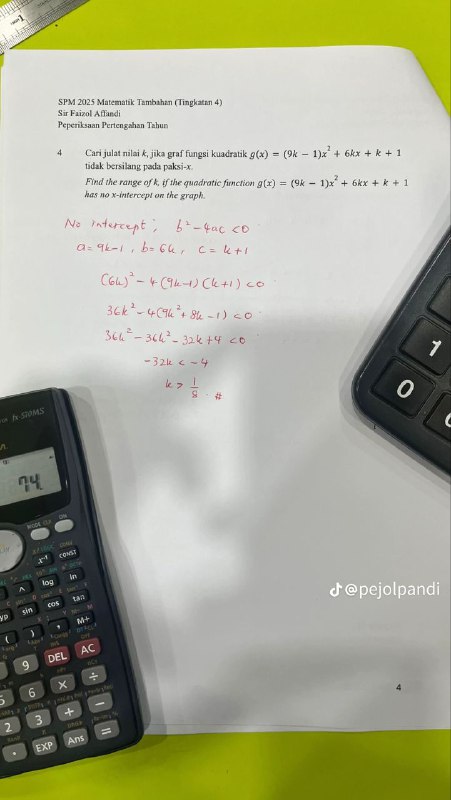 SPM 2025 Matematik Tambahan (Tingkatan 4)
Sir Faizol Affandi
Peperiksaan Pertengahan Tahun
4 Cari julat nilai k, jika graf fungsi kuadratik g(x) = (9k − 1)x² + 6kx + k + 1
tidak bersilang pada paksi-x.
Find the range of k, if the quadratic function g(x) = (9k − 1)x² + 6kx + k + 1
has no x-intercept on the graph.
No intercept; b² − 4ac < 0
a = 9k−1, b = 6k, c = k+1
(6k)² − 4(9k−1)(k+1) < 0
36k² − 4(9k² + 8k − 1) < 0
36k² − 36k² − 32k + 4 < 0
−32k < −4
k > 1/8 . #
1
0
fx-570MS
74.
MODE CLR ON
x⁻¹ CONST
^ log ln
sin cos tan
( ) , M+
9 DEL AC
5 6 × ÷
2 3 + −
. EXP Ans =
@pejolpandi
4